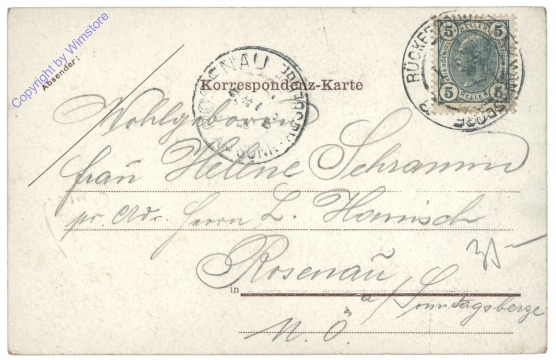 Copyright by Wimstore
Absender:
Korrespondenz-Karte
5 5
5 5
Wohlgeboren
Frau Helene Schramm
pr. Adr. Herrn L. Hamisch
Rosenau
in
a/ Sonntagsberge
N. Ö.